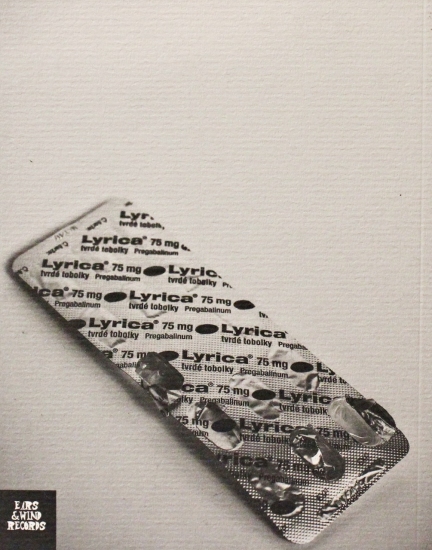 Lyr
tvrdé tobolk
Lyrica® 75 mg
tvrdé tobolky Pregabalinum
Lyrica® 75 mg Lyric
tvrdé tobolky Pregabalinum tvrdé tobolky
Lyrica® 75 mg
tvrdé tobolky Pregabalinum
Lyrica® 75 mg Lyrica®
tvrdé tobolky Pregabalinum tvrdé tobolky
75 mg Lyrica® 75 mg Ly
tvrdé tobolky Pregabalinum
75 mg Lyrica
Pregabalinum tvrdé tobolky
75 mg
Lyrica® 75 mg
EARS
&WIND
RECORDS